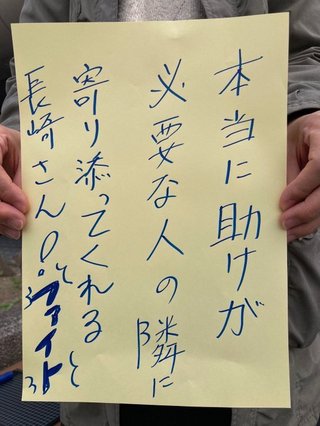 本当に助けが
必要な人の隣に
寄り添ってくれると
長崎さん!
ファイト